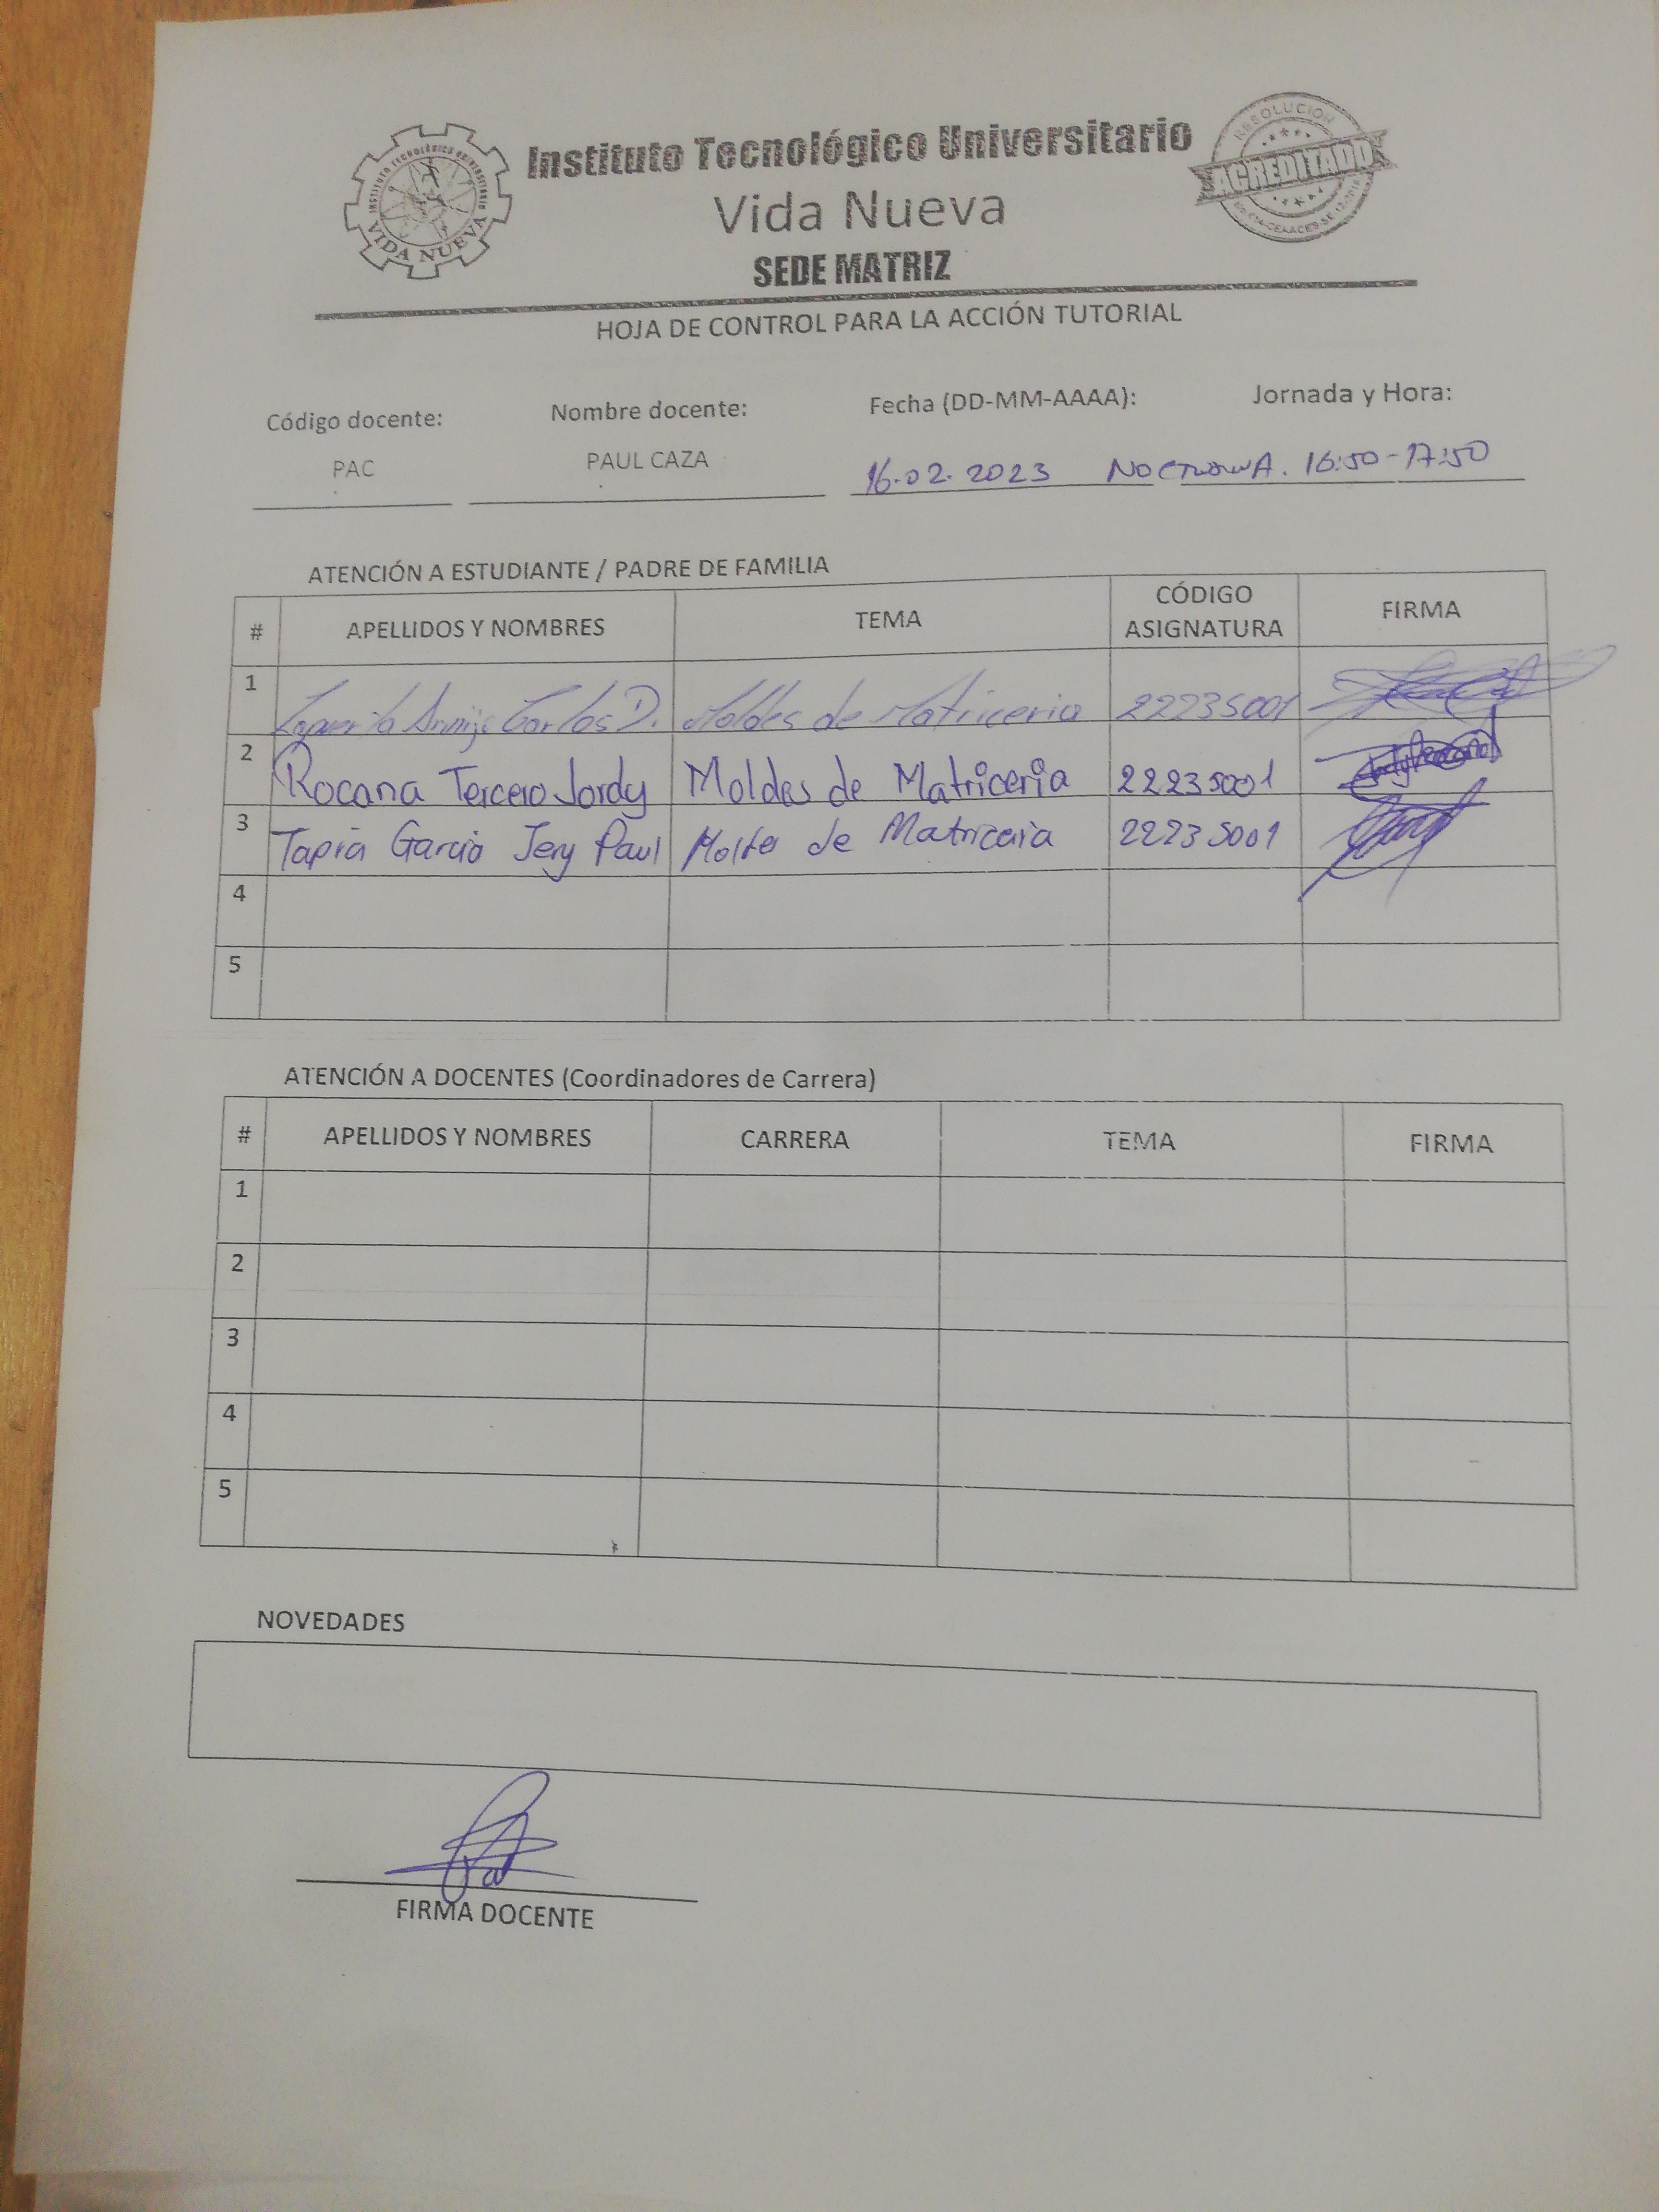 Instituto Tecnológico Universitario
Vida Nueva
SEDE MATRIZ
INSTITUTO TECNOLÓGICO UNIVERSITARIO
VIDA NUEVA
RESOLUCIÓN
ACREDITADO
HOJA DE CONTROL PARA LA ACCIÓN TUTORIAL
Código docente: Nombre docente: Fecha (DD-MM-AAAA): Jornada y Hora:
PAC PAUL CAZA 16.02.2023 NOCTURNA. 16:50-17:50
ATENCIÓN A ESTUDIANTE / PADRE DE FAMILIA
# APELLIDOS Y NOMBRES TEMA CÓDIGO ASIGNATURA FIRMA
1 Carlos D. Moldes de Matriceria 22235001
2 Rocana Tercero Jordy Moldes de Matriceria 22235001
3 Tapia Garcia Jery Paul de Matriceria 22235001
4
5
ATENCIÓN A DOCENTES (Coordinadores de Carrera)
# APELLIDOS Y NOMBRES CARRERA TEMA FIRMA
1
2
3
4
5
NOVEDADES
FIRMA DOCENTE